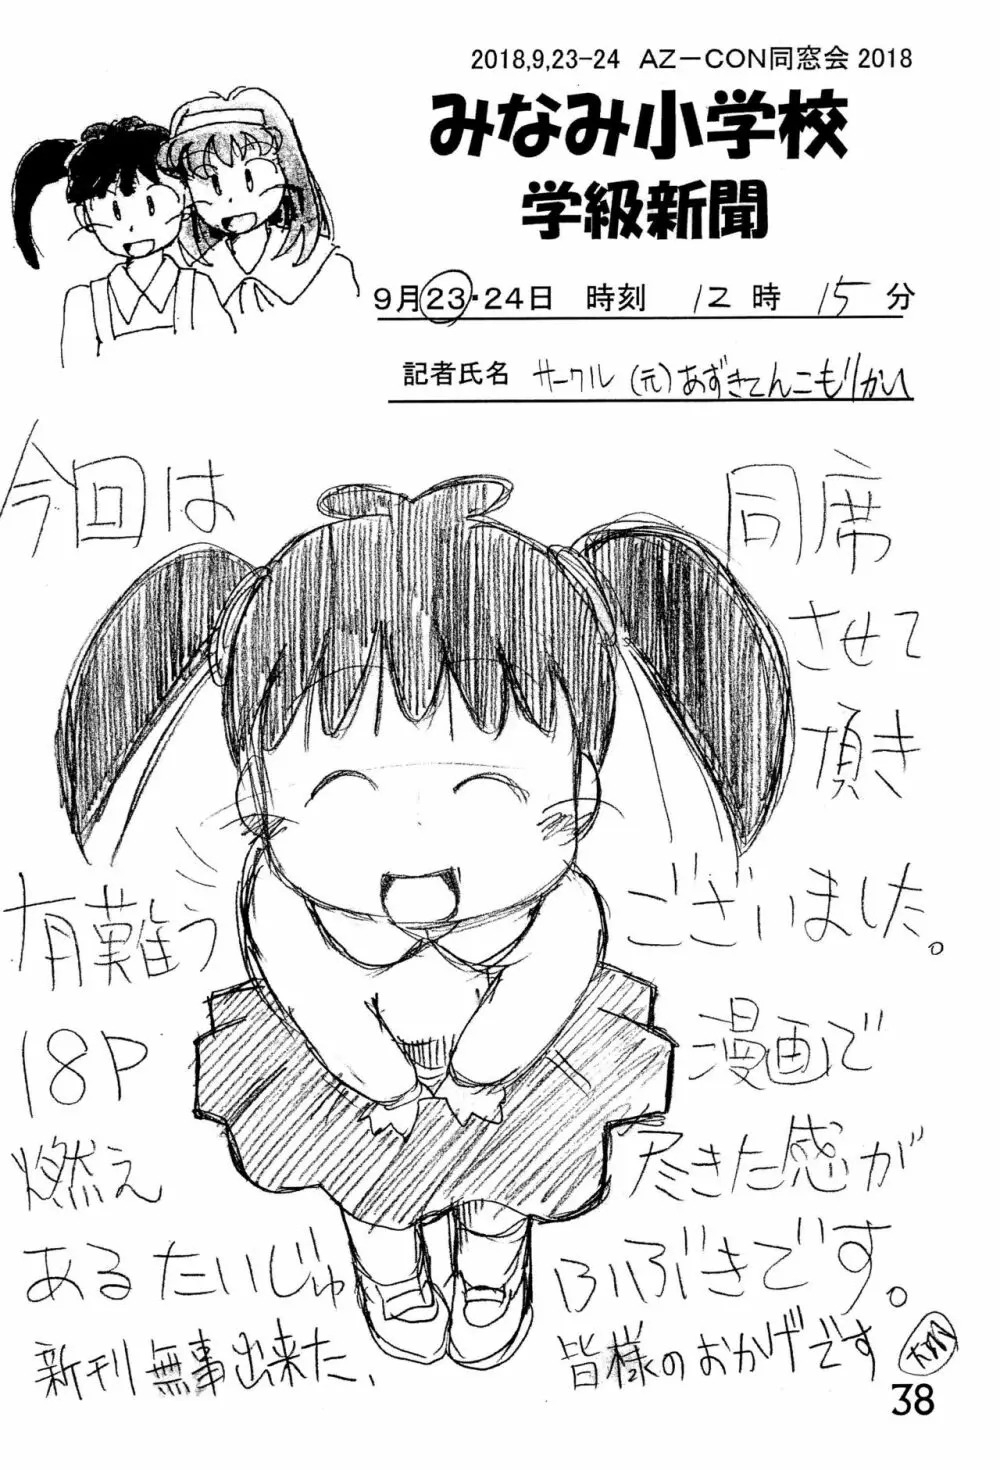 2018,9,23-24 AZ-CON同窓会 2018
みなみ小学校
学級新聞
9月23・24日 時刻 12時 15分
記者氏名 サークル(元)あずきてんこもりかい
今回は 同席
させて
頂き
有難う ございました。
18P 漫画で
燃え 尽きた感が
あるたいじゅ ふぶきです。
新刊無事出来た、皆様のおかげです
38